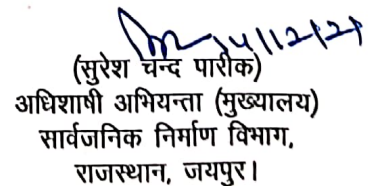 (सुरेश चन्द पारीक)
अधिशाषी अभियन्ता (मुख्यालय)
सार्वजनिक निर्माण विभाग,
राजस्थान, जयपुर।